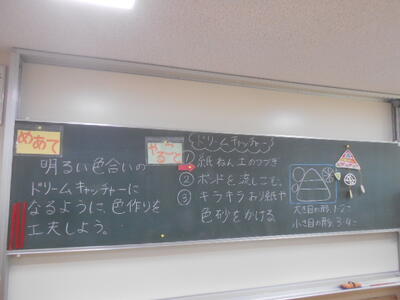 めあて
明るい色合いの
ドリームキャッチャーに
なるように、色作りを
工夫しよう。
やること
ドリームキャッチャー
① 紙ねん土のつづき
② ボンドを流しこむ。
③ キラキラおり紙や
色砂をかける。
大き目の形、1~2
小さ目の形、3~4